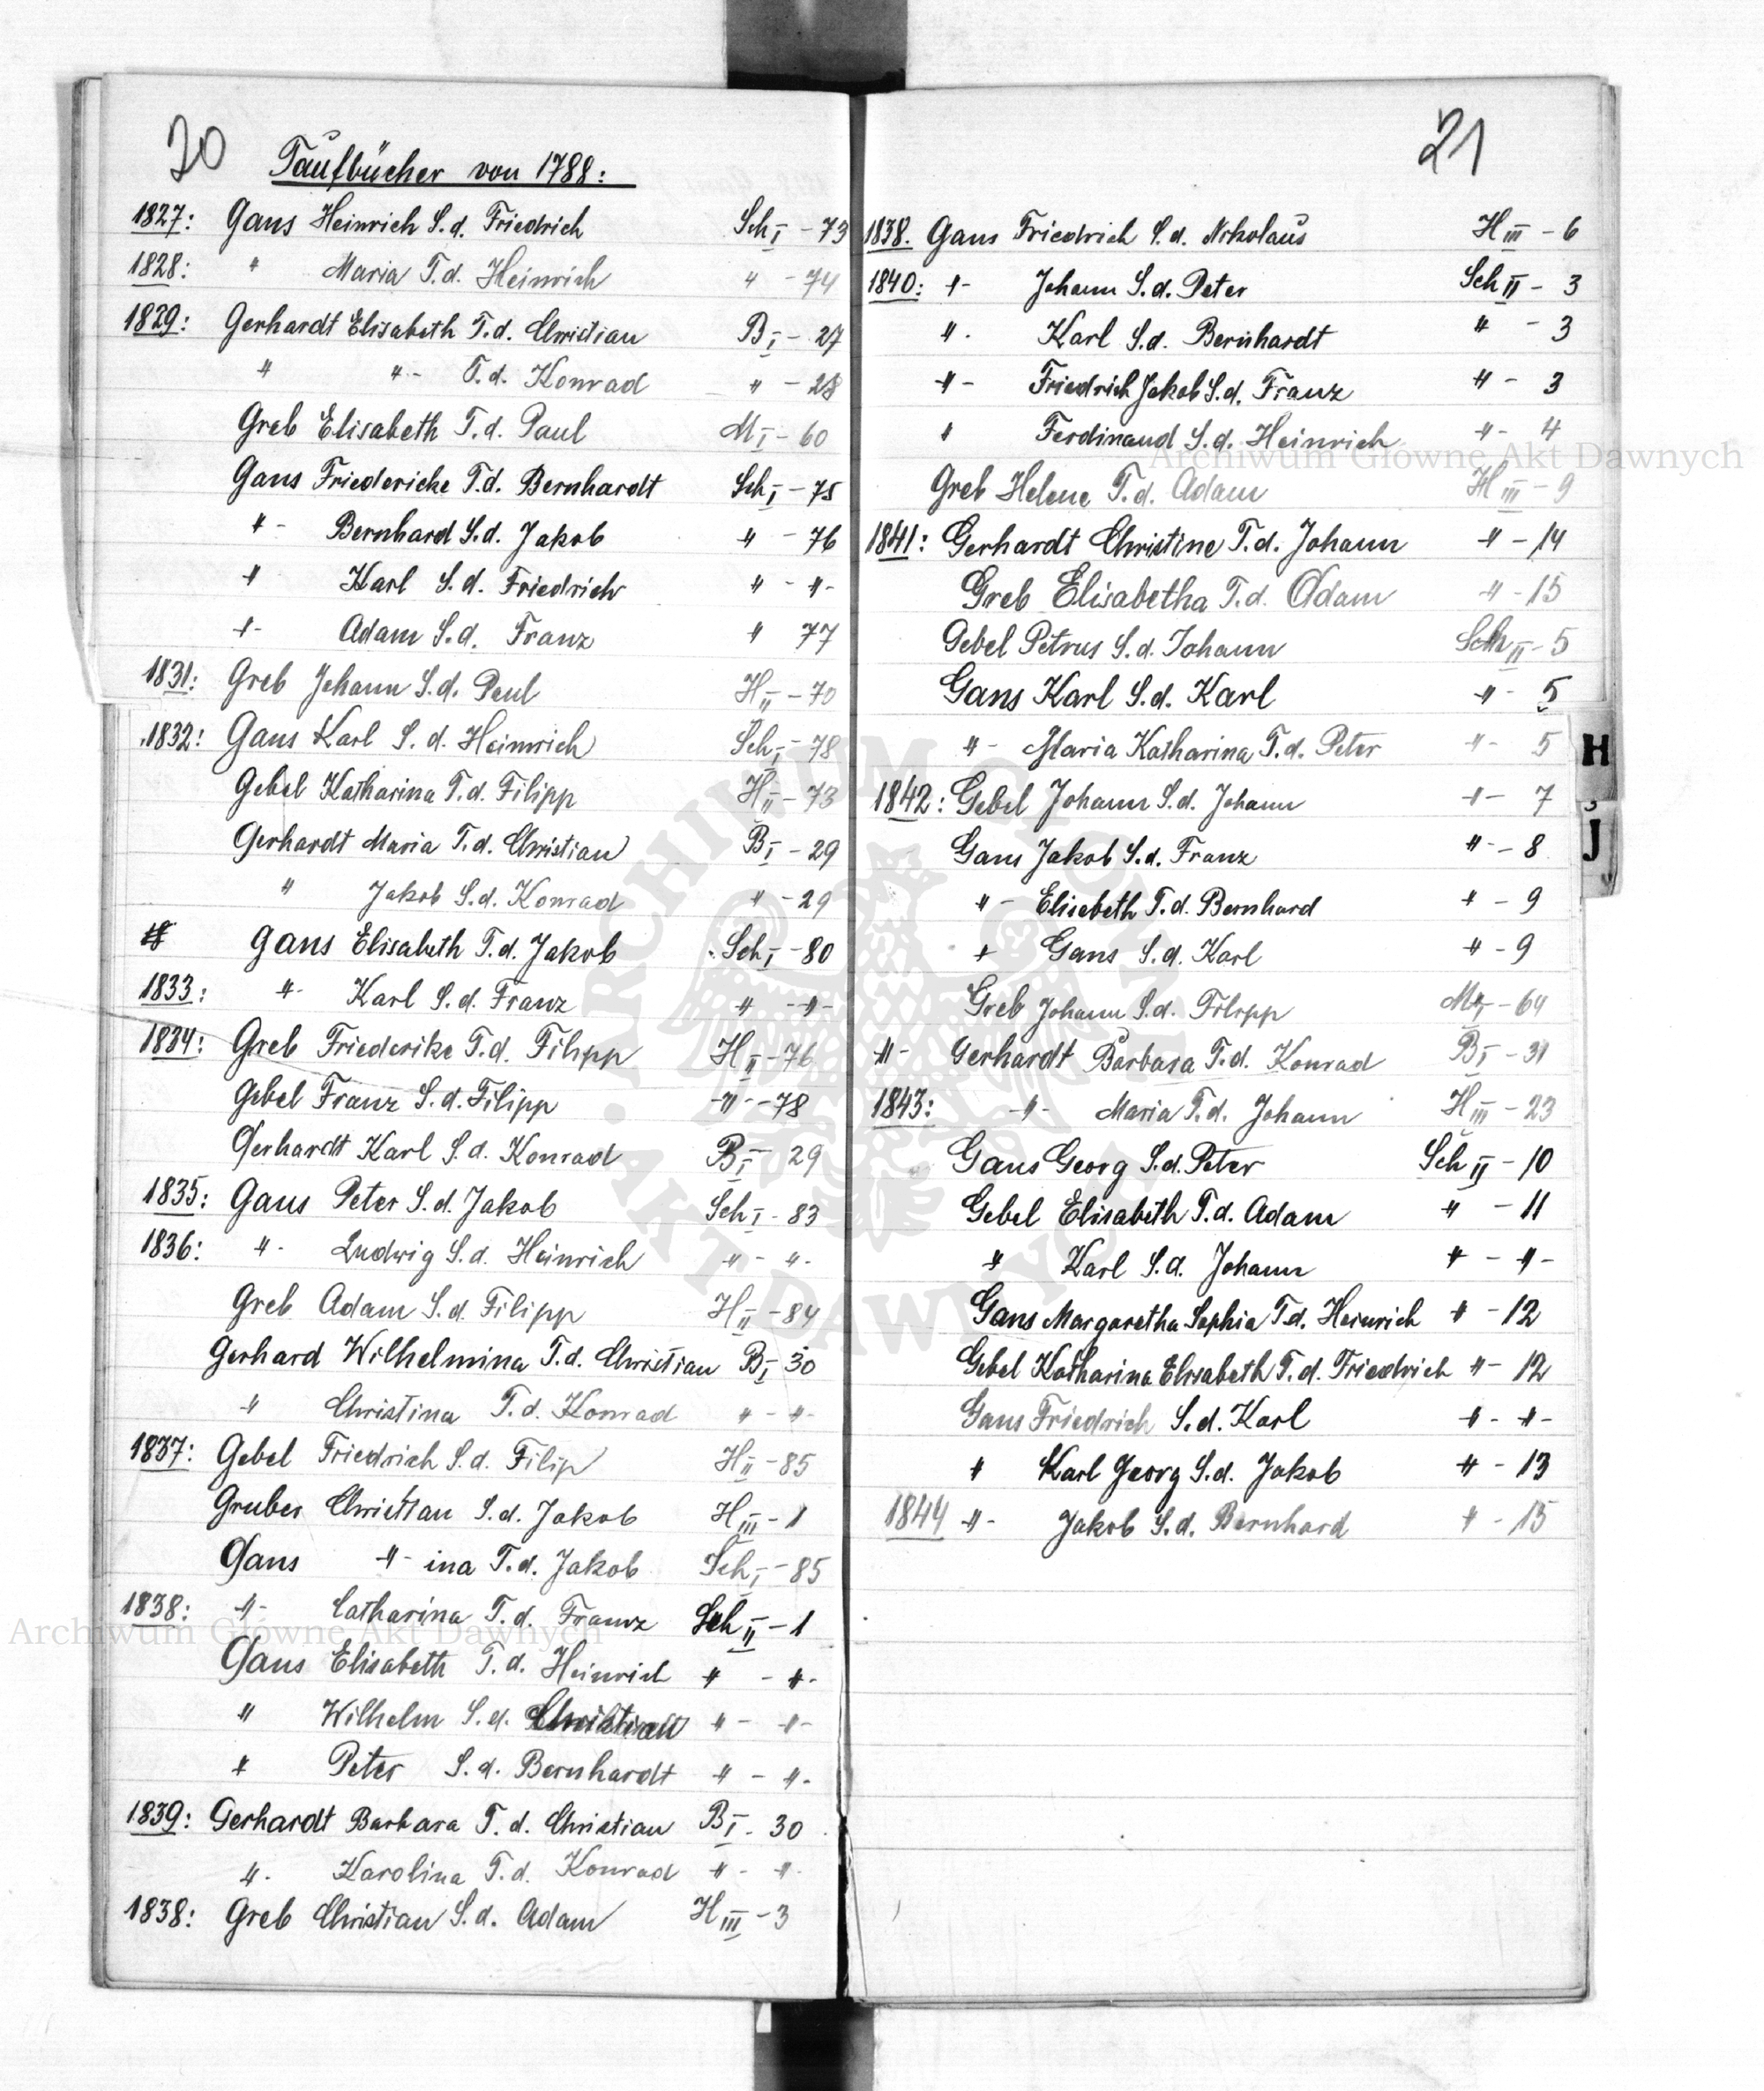 20
Taufbücher von 1788:
1827: Gans Heinrich S.d. Friedrich Sch I - 73
1828: " Maria T.d. Heinrich " - 74
1829: Gerhardt Elisabeth T.d. Christian B I - 27
" " - T.d. Konrad " - 28
Greb Elisabeth T.d. Paul M I - 60
Gans Friedericke T.d. Bernhardt Sch I - 75
" - Bernhard S.d. Jakob " - 76
" Karl S.d. Friedrich " - " -
" - Adam S.d. Franz " 77
1831: Greb Johann S.d. Paul H II - 70
1832: Gans Karl S.d. Heinrich Sch I - 78
Gebel Katharina T.d. Filipp H II - 73
Gerhardt Maria T.d. Christian B I - 29
" Jakob S.d. Konrad " - 29
Gans Elisabeth T.d. Jakob Sch I - 80
1833: " - Karl S.d. Franz " - " -
1834: Greb Friederike T.d. Filipp H II - 76
Gebel Franz S.d. Filipp - " - 78
Gerhardt Karl S.d. Konrad B I - 29
1835: Gans Peter S.d. Jakob Sch I - 83
1836: " - Ludwig S.d. Heinrich " - " -
Greb Adam S.d. Filipp H II - 84
Gerhard Wilhelmina T.d. Christian B I - 30
" Christina T.d. Konrad " - " -
1837: Gebel Friedrich S.d. Filip H II - 85
Gruber Christian S.d. Jakob H III - 1
Gans " - ina T.d. Jakob Sch I - 85
1838: " - Catharina T.d. Franz Sch II - 1
Gans Elisabeth T.d. Heinrich " - " -
" Wilhelm S.d. Christian " - " -
" Peter S.d. Bernhardt " - " -
1839: Gerhardt Barbara T.d. Christian B I - 30
" - Karolina T.d. Konrad " - " -
1838: Greb Christian S.d. Adam H III - 3
21
1838. Gans Friedrich S.d. Nikolaus H III - 6
1840: " - Johann S.d. Peter Sch II - 3
" - Karl S.d. Bernhardt " - 3
" - Friedrich Jakob S.d. Franz " - 3
" Ferdinand S.d. Heinrich " - 4
Greb Helene T.d. Adam H III - 9
1841: Gerhardt Christine T.d. Johann " - 14
Greb Elisabetha T.d. Adam " - 15
Gebel Petrus S.d. Johann Sch II - 5
Gans Karl S.d. Karl " - 5
" - Maria Katharina T.d. Peter " - 5
1842: Gebel Johann S.d. Johann " - 7
Gans Jakob S.d. Franz " - 8
" - Elisebeth T.d. Bernhard " - 9
" Gans S.d. Karl " - 9
Greb Johann S.d. Filipp M I - 64
" - Gerhardt Barbara T.d. Konrad B I - 31
1843: " - Maria T.d. Johann H III - 23
Gans Georg S.d. Peter Sch II - 10
Gebel Elisabeth T.d. Adam " - 11
" Karl S.d. Johann " - " -
Gans Margaretha Sophia T.d. Heinrich " - 12
Gebel Katharina Elisabeth T.d. Friedrich " - 12
Gans Friedrich S.d. Karl " - " -
" Karl Georg S.d. Jakob " - 13
1844 " - Jakob S.d. Bernhard " - 15
H
J
Archiwum Główne Akt Dawnych
Archiwum Główne Akt Dawnych
ARCHIWUM GŁÓWNE AKT DAWNYCH